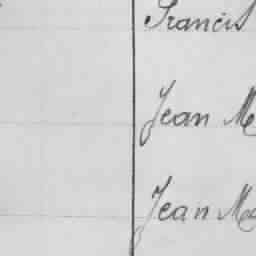 Francis
Jean M
Jean Ma